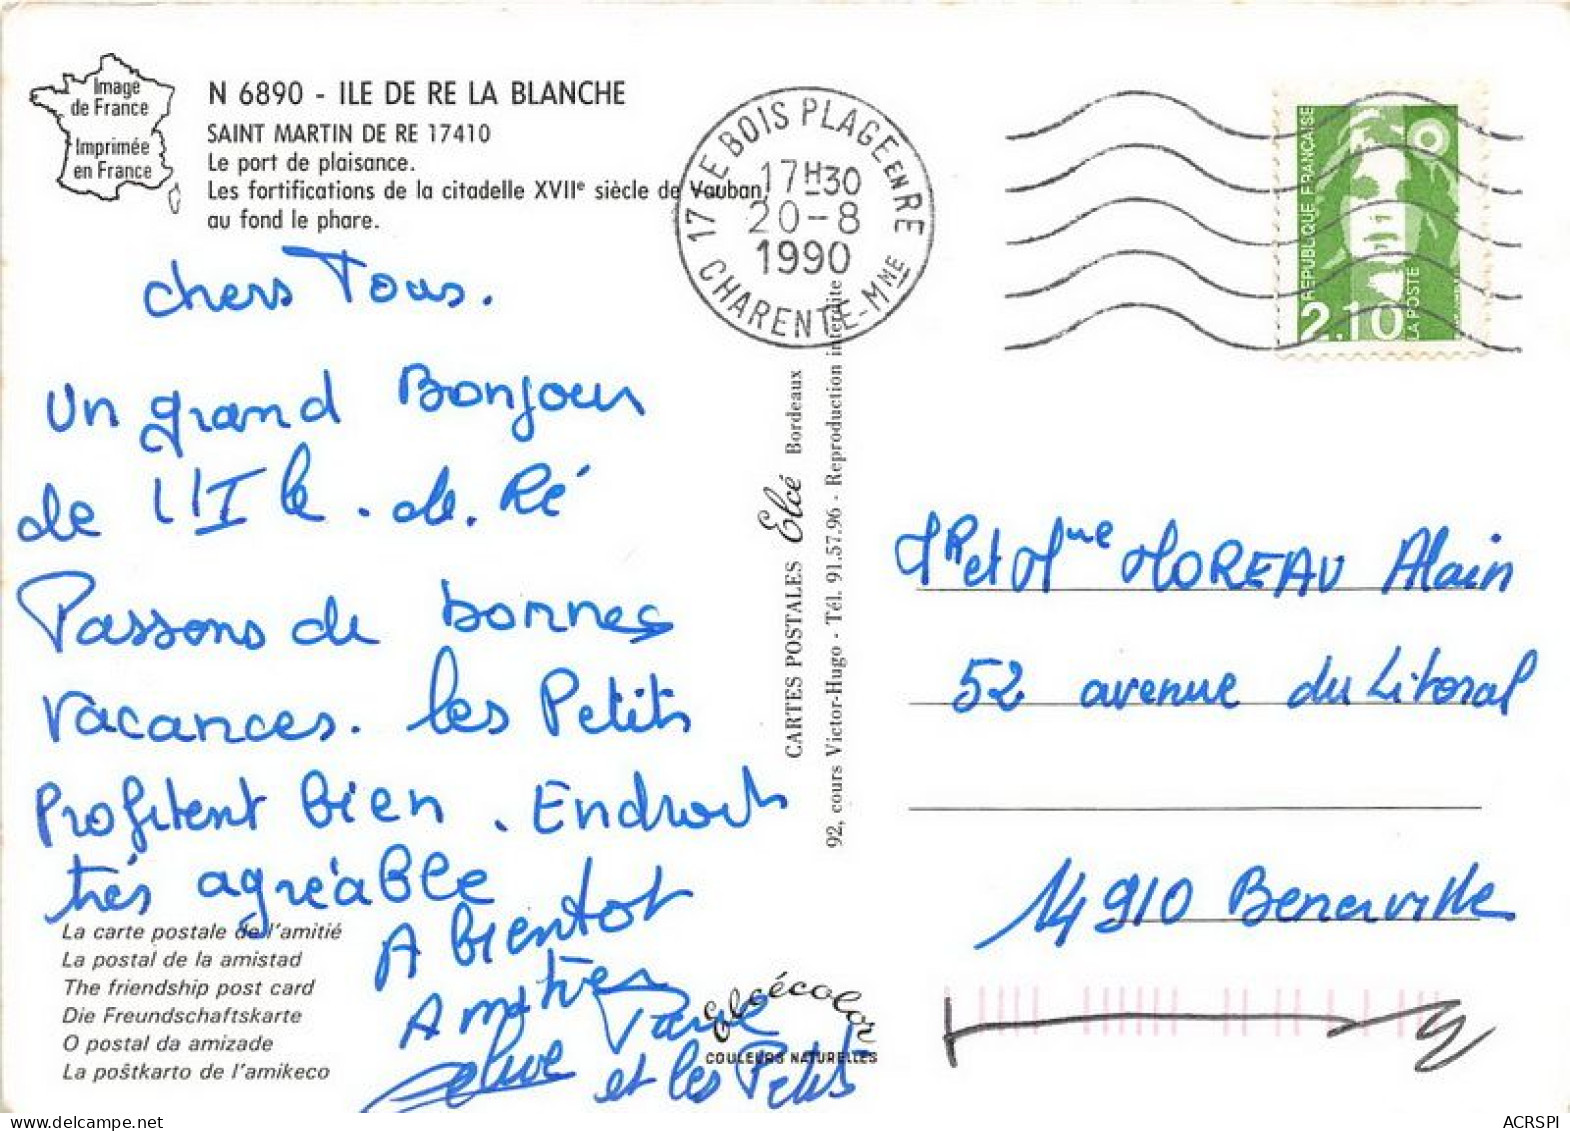 Image
de France
Imprimée
en France
N 6890 - ILE DE RE LA BLANCHE
SAINT MARTIN DE RE 17410
Le port de plaisance.
Les fortifications de la citadelle XVIIe siècle de Vauban
au fond le phare.
17 LE BOIS PLAGE EN RE
17H30
20-8
1990
CHARENTE-MME
REPUBLIQUE FRANÇAISE
2.10
LA POSTE
chers Tous.
Un grand Bonjour
de l'Ile.de.Ré
Passons de bonnes
vacances. les Petits
Profitent bien. Endroit
très agréable
A bientot
Amitiés
Paul
et les Petits
CARTES POSTALES Elcé Bordeaux
92, cours Victor-Hugo - Tél. 91.57.96 - Reproduction interdite
Mr et Mme MOREAU Alain
52 avenue du Litoral
14910 Benerville
La carte postale de l'amitié
La postal de la amistad
The friendship post card
Die Freundschaftskarte
O postal da amizade
La poštkarto de l'amikeco
Elcécolor
COULEURS NATURELLES
ACRSPI